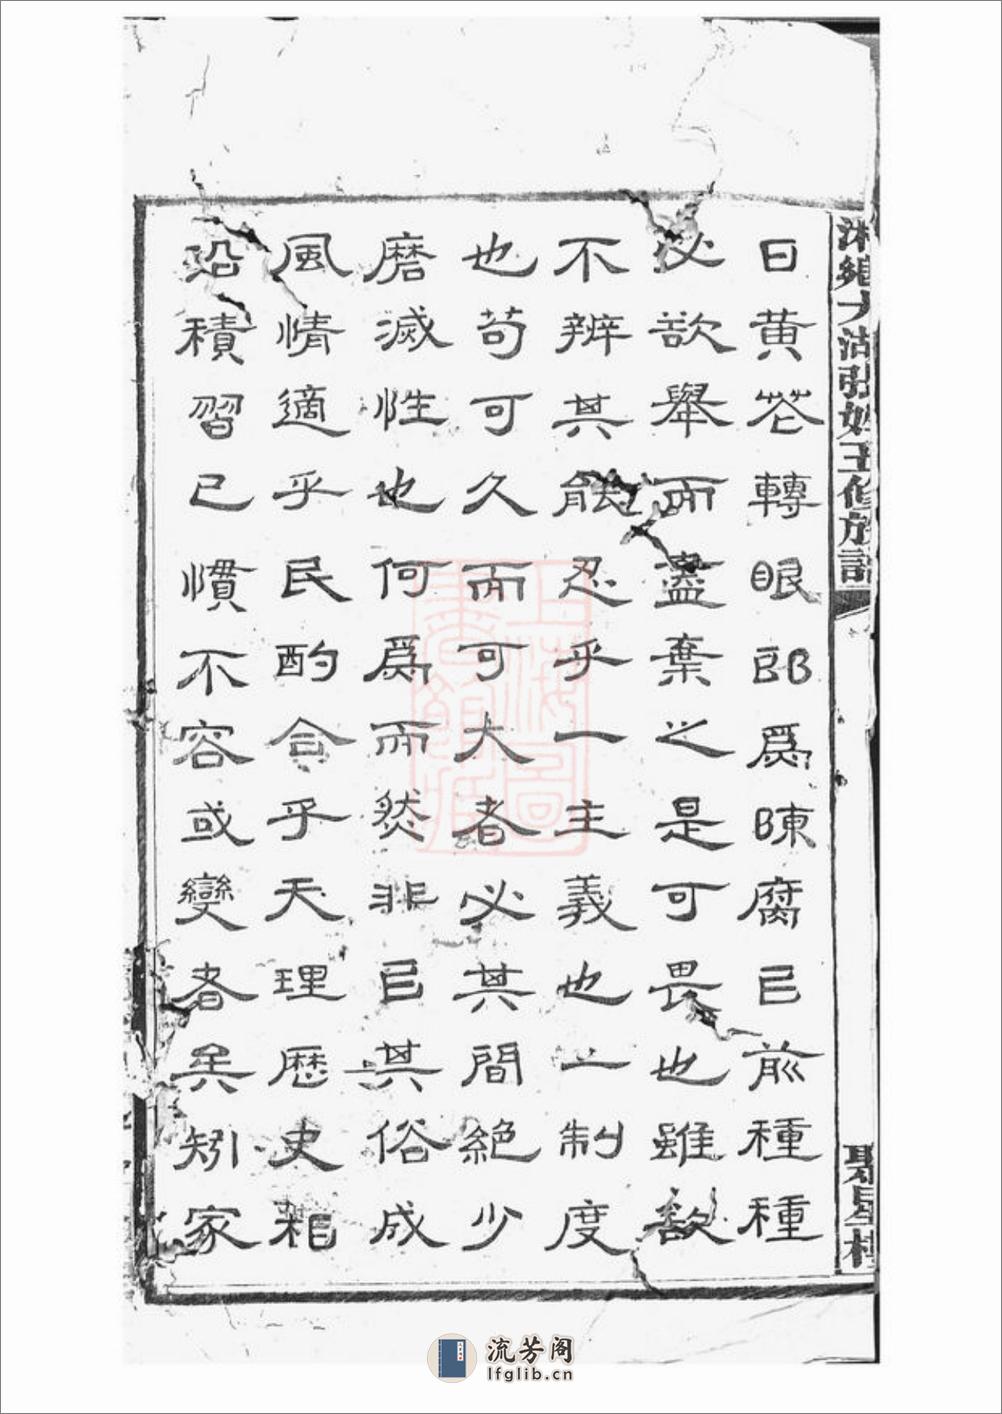 湘鄉大沽張姓五修族譜
聚星樓
日黄花轉眼郎爲陳腐已前種種
必欲舉而盡棄之是可畏也雖欲
不辨其能忍乎一主義也一制度
也苟可久而可大者必其間絕少
磨滅性也何爲而然非已其俗成
風情適乎民酌合乎天理歷史相
沿積習已慣不容或變者矣矧家
上海圖書館藏
流芳阁
lfglib.cn